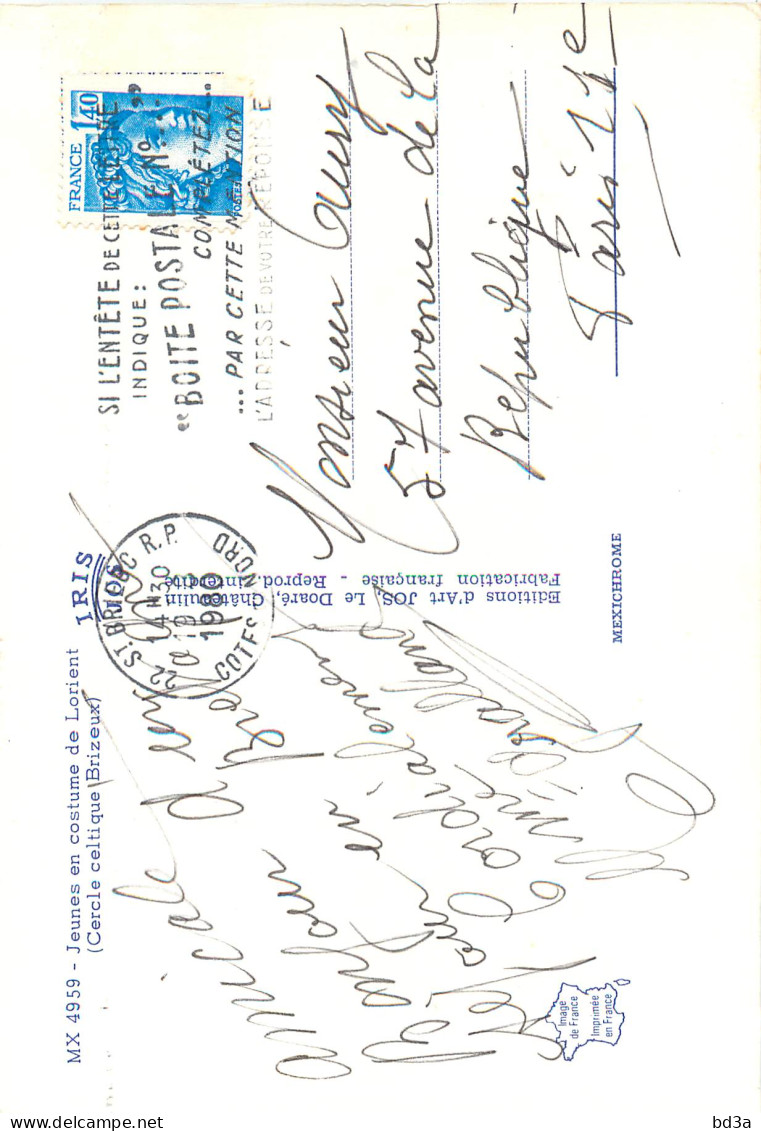 MX 4959 - Jeunes en costume de Lorient
(Cercle celtique Brizeux)
IRIS
106
FRANCE
1,40
POSTES
SI L'ENTÊTE DE CETTE LETTRE
INDIQUE:
"BOITE POSTALE No...."
COMPLÉTEZ...
...PAR CETTE MENTION
L'ADRESSE DE VOTRE RÉPONSE
22 ST BRIEUC R.P.
14H30
19
1980
COTES NORD
amicale
Bonjour
séjour en
Cordialement
Mme
Monsieur
57 avenue de la
République
Paris 11e
Editions d'Art JOS, Le Doaré, Châteaulin
Fabrication française - Reprod. interdite
MEXICHROME
Image
de France
Imprimée
en France
bd3a